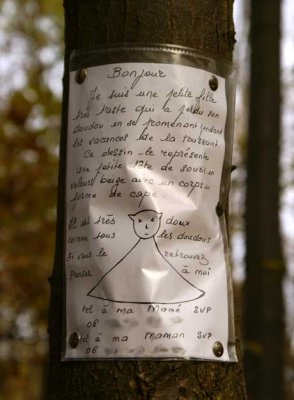 Bonjour
Je suis une petite fille
très triste qui a perdu son
doudou en se promenant pendant
les vacances de la toussaint.
Ce dessin le représente
Une petite tête de souris en
velours beige avec un corps
forme de cape.
Il est très doux
comme tous les doudous
Si vous le retrouvez
Penser à moi
tel à ma Mamé SVP
06
tel à ma Maman SVP
06